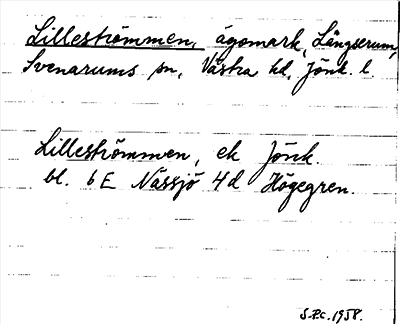 Lilleströmmen, ägomark, Långserum,
Svenarums sn, Västra hd, Jönk. l
Lilleströmmen, ek Jönk
bl. 6 E Nässjö 4d Högegren.
S.P.C. 1958.